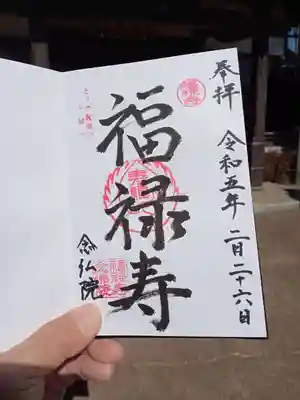 奉拝
令和五年 二月二十六日
福禄寿
念仏院